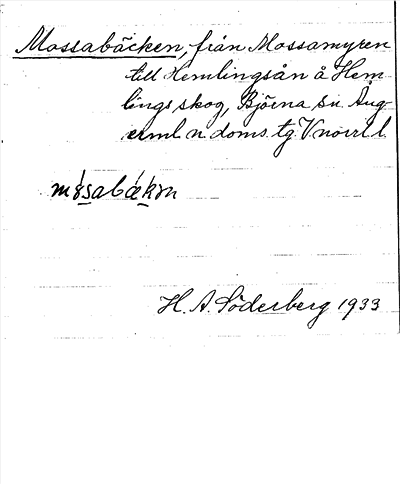 Mossabäcken, från Mossamyren
till Hemlingsån å Hem-
lings skog, Björna sn Ång-
erml n doms. tg. V norrl l.
mósabǽkɘn
H. A. Söderberg 1933